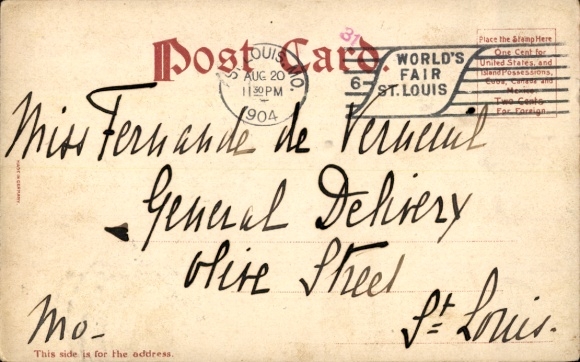 Post Card.
ST. LOUIS, MO.
AUG 20
11 30 PM
1904
31
6
WORLD'S
FAIR
ST. LOUIS
Place the Stamp Here
One Cent for
United States, and
Island Possessions,
Cuba, Canada and
Mexico
Two Cents
For Foreign
Miss Fernande de Verneuil
General Delivery
Olive Street
St Louis.
Mo-
MADE IN GERMANY.
This side is for the address.